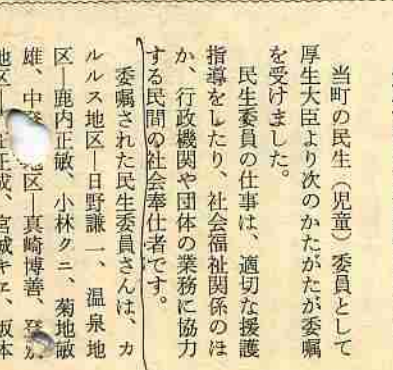 当町の民生（児童）委員として
厚生大臣より次のかたがたが委嘱
を受けました。
民生委員の仕事は、適切な援護
指導をしたり、社会福祉関係のほ
か、行政機関や団体の業務に協力
する民間の社会奉仕者です。
委嘱された民生委員さんは、カ
ルルス地区―日野謙一、温泉地
区―鹿内正敏、小林クニ、菊地敏
雄、中登 地区―真崎博善、登別
地区― 正成、宮城キエ、坂本